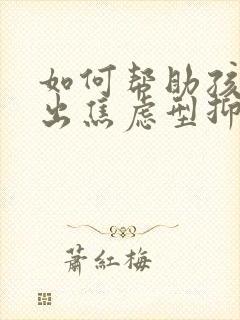 如何帮助孩
出焦虑型抑
蕭紅梅